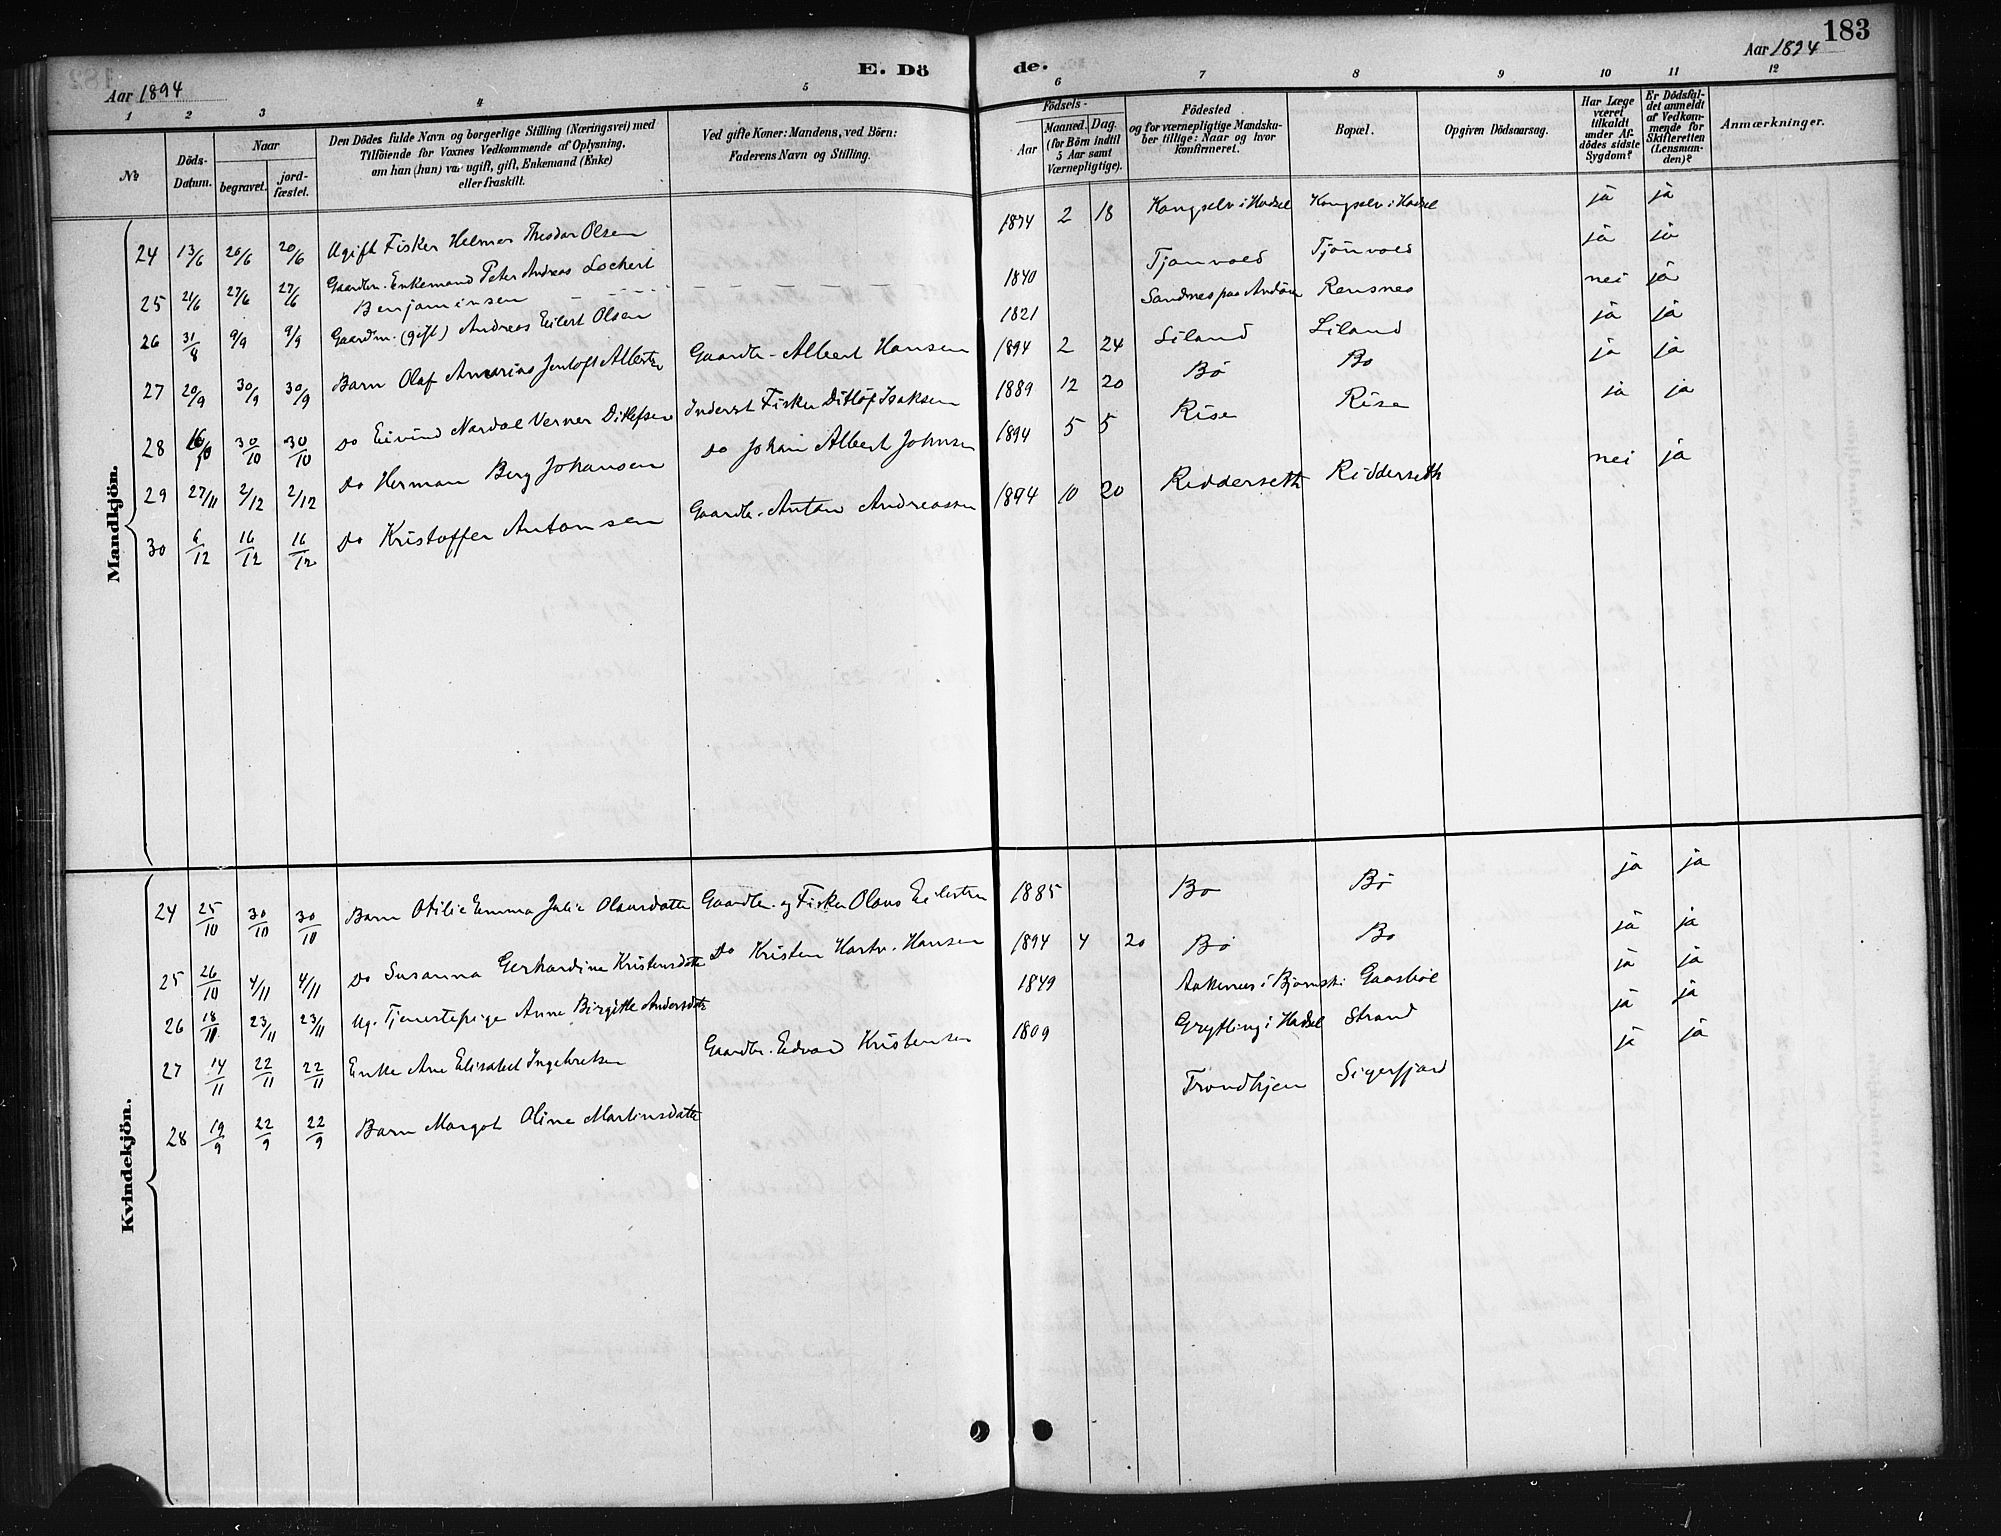 183
Aar 1894
E. Dö
de.
Aar 1894
1 2 3 4 5 6 7 8 9 10 11 12
No
Döds-Datum.
Naar
begravet.
jord-fæstet.
Den Dödes fulde Navn og borgerlige Stilling (Næringsvei) med
Tilföiende for Voxnes Vedkommende af Oplysning,
om han (hun) var ugift, gift, Enkemand (Enke)
eller fraskilt.
Ved gifte Koner: Mandens, ved Börn:
Faderens Navn og Stilling.
Födsels-
Aar
Maaned. Dag.
(for Börn indtil
5 Aar samt
Værnepligtige).
Födested
og for værnepligtige Mandska-
ber tillige: Naar og hvor
konfirmeret.
Bopæl.
Opgiven Dödsaarsag.
Har Læge
været
tilkaldt
under Af-
dödes sidste
Sygdom?
Er Dödsfal-
det anmeldt
af Vedkom-
mende for
Skifteretten
(Lensman-
den)?
Anmærkninger.
Mandkjön.
24 13/6 20/6 20/6 Ugift Fisker Helmer Theodor Olsen 1874 2 18 Kongselv i Hadsel Kongselv i Hadsel ja ja
25 21/6 27/6 27/6 Gaardbr. Enkemand Peter Andreas Lochert
Benjaminsen 1840 Tjonvold Tjönvold ja ja
26 31/8 9/9 9/9 Gaardm. (gift) Andreas Eilert Olsen 1821 Sandnes paa Andöen Rensnes nei ja
27 20/9 30/9 30/9 Barn Olaf Amarias Jentoft Albertsen Gaardbr. Albert Hansen 1894 2 24 Liland Liland ja ja
28 16/10 30/10 30/10 Do Eivind Nordal Verner Ditlefsen Inderst Fisker Ditlöf Isaksen 1889 12 20 Bö Bo ja ja
29 27/11 2/12 2/12 Do Herman Berg Johansen Do Johan Albert Johnsen 1894 5 5 Rise Rise ja ja
30 6/12 16/12 16/12 Do Kristoffer Antonsen Gaardbr. Anton Andreassen 1894 10 20 Ridderseth Ridderseth nei ja
Kvindekjön.
24 25/10 30/10 30/10 Barn Otilie Emma Julie Olausdatter Gaardbr. og Fisker Olaus Eilertsen 1885 Bo Bö ja ja
25 26/10 4/11 4/11 Do Susanna Gerhardine Kristensdatter Do Kristen Hartv. Hansen 1894 4 20 Bö Bo ja ja
26 18/11 23/11 23/11 Ug. Tjenestepige Anne Birgitte Andersdatter 1849 Aakernes i Bjornsk. Gaasböl ja ja
27 14/11 22/11 22/11 Enke Ane Elisabet Ingebretsen Gaardbr. Edvard Kristensen 1809 Grytting i Hadsel Strand ja ja
28 19/9 22/9 22/9 Barn Margot Oline Martinsdatter Trondhjem Sigerfjord ja ja